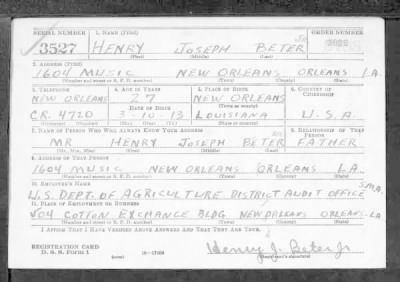 SERIAL NUMBER 1. NAME (Print) ORDER NUMBER
3527 HENRY JOSEPH BETER JR
(First) (Middle) (Last)
2. ADDRESS (Print)
1604 MUSIC NEW ORLEANS ORLEANS LA
(Number and street or R. F. D. number) (Town) (County) (State)
3. TELEPHONE 4. AGE IN YEARS 5. PLACE OF BIRTH 6. COUNTRY OF CITIZENSHIP
NEW ORLEANS 27 NEW ORLEANS
DATE OF BIRTH (Town or county)
CR. 4720 3-10-13 LOUISIANA U.S.A.
(Exchange) (Number) (Mo.) (Day) (Yr.) (State or country)
7. NAME OF PERSON WHO WILL ALWAYS KNOW YOUR ADDRESS 8. RELATIONSHIP OF THAT PERSON
MR HENRY JOSEPH BETER SR. FATHER
(Mr., Mrs., Miss) (First) (Middle) (Last)
9. ADDRESS OF THAT PERSON
1604 MUSIC NEW ORLEANS ORLEANS LA.
(Number and street or R. F. D. number) (Town) (County) (State)
10. EMPLOYER'S NAME
U.S. DEPT. OF AGRICULTURE DISTRICT AUDIT OFFICE
11. PLACE OF EMPLOYMENT OR BUSINESS
404 COTTON EXCHANGE BLDG. NEW ORLEANS ORLEANS LA
(Number and street or R. F. D. number) (Town) (County) (State)
I AFFIRM THAT I HAVE VERIFIED ABOVE ANSWERS AND THAT THEY ARE TRUE.
REGISTRATION CARD
D. S. S. Form 1 (over) 16—17105 Henry J. Beter Jr
(Registrant's signature)